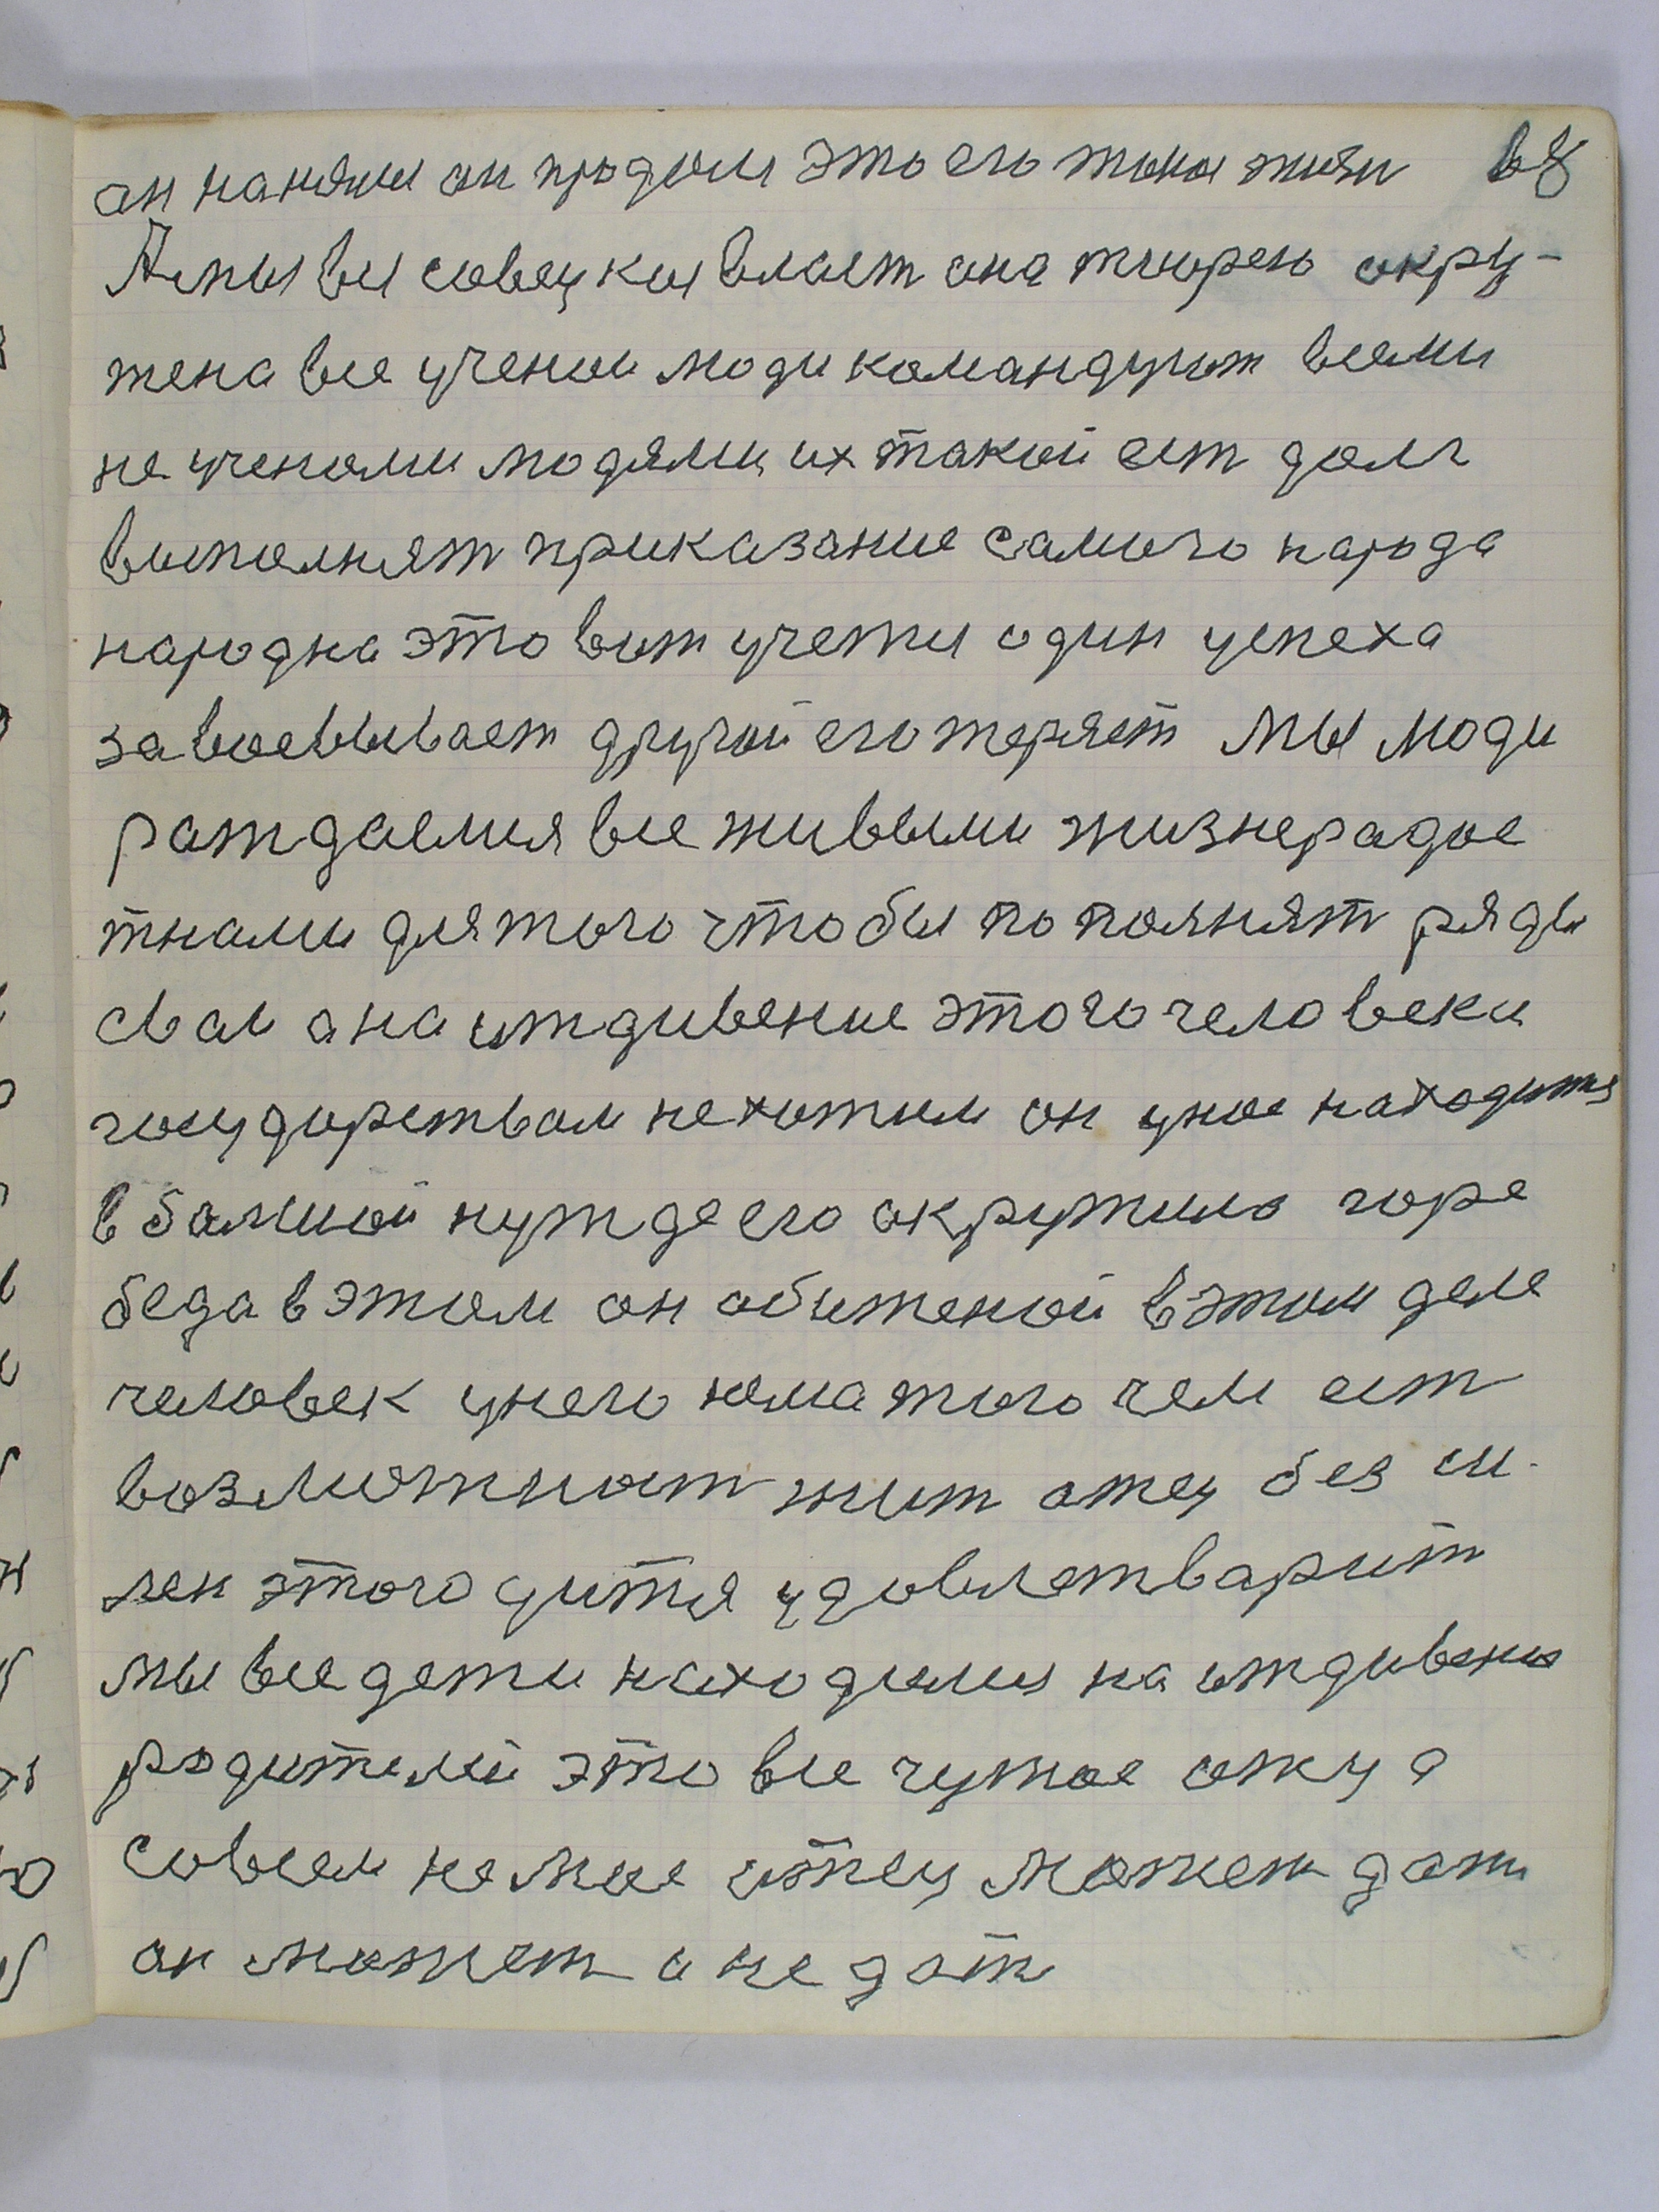 он начяли он продали это его така жизн 68
А мы вы совецкоя власт она тиорею окру-
жена все ученои люди командуют всеми
не ученоми людями, их такой ест долг
выполнят приказание самого народа
народна это вот учеты один успеха
завоевывает другой его теряет мы люди
раждаемся все живыми жизнерадос
тнами для того чтобы пополнят ряды
свои а на иждивение этого человека
государством не хотим он уное находится
в болшой нужде его окружило горе
беда в этом он обиженой в этом деле
человек унего нема того чем ест
возможност жит отец без си-
лен этого дитя удовлетварит
мы все дети находимся на иждивению
родителей это все чужое отку а
совсем не мое отец может дать
он может и не дат